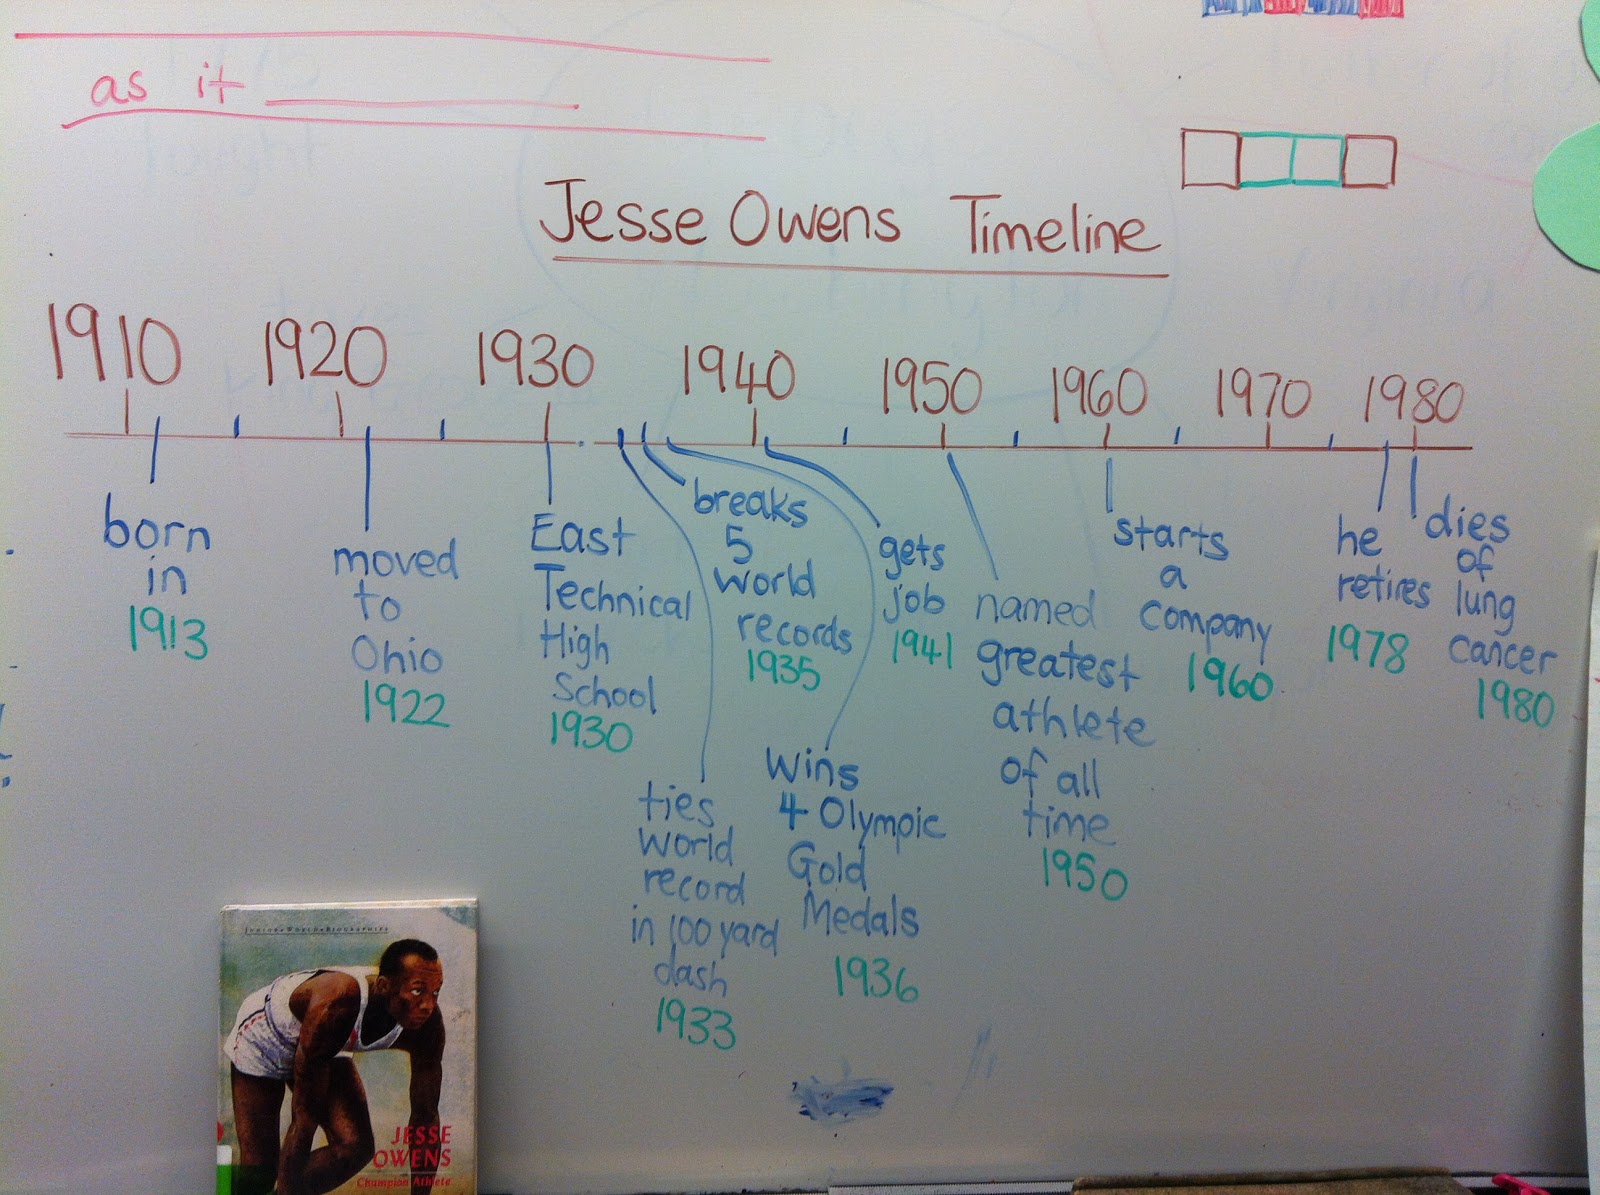 as it
Jesse Owens Timeline
1910 1920 1930 1940 1950 1960 1970 1980
born
in
1913
moved
to
Ohio
1922
East
Technical
High
School
1930
ties
world
record
in 100 yard
dash
1933
breaks
5
world
records
1935
wins
4 Olympic
Gold
Medals
1936
gets
job
1941
named
greatest
athlete
of all
time
1950
starts
a
company
1960
he
retires
1978
dies
of
lung
cancer
1980
JUNIOR•WORLD•BIOGRAPHIES
JESSE
OWENS
Champion Athlete